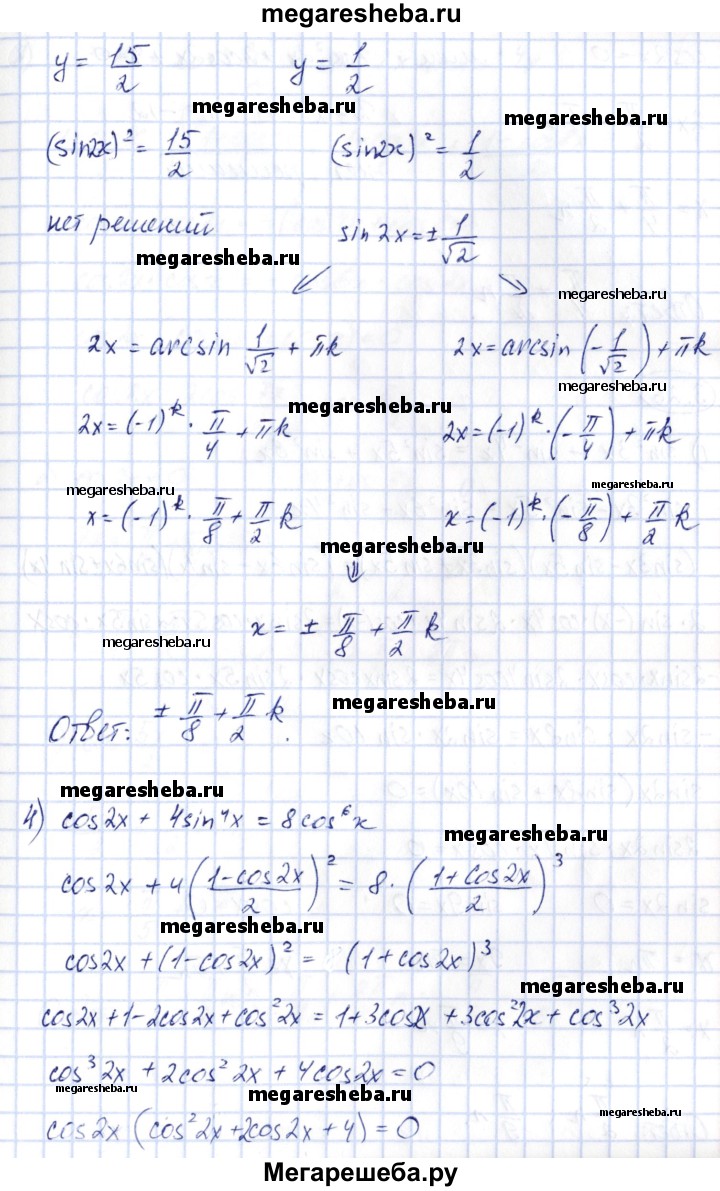 megaresheba.ru
y = 15/2    y = 1/2
megaresheba.ru    megaresheba.ru
(sin2x)² = 15/2    (sin2x)² = 1/2
нет решений    sin 2x = ± 1/√2
megaresheba.ru
⇙    ⇘
megaresheba.ru
2x = arcsin 1/√2 + πk    2x = arcsin (-1/√2) + πk
megaresheba.ru
megaresheba.ru
2x = (-1)^k · π/4 + πk    2x = (-1)^k · (-π/4) + πk
megaresheba.ru    megaresheba.ru
x = (-1)^k · π/8 + π/2 k    x = (-1)^k · (-π/8) + π/2 k
megaresheba.ru
⇓
x = ± π/8 + π/2 k
megaresheba.ru
megaresheba.ru
Ответ: ± π/8 + π/2 k.
megaresheba.ru
4) cos2x + 4sin⁴x = 8cos⁶x
megaresheba.ru
cos2x + 4((1-cos2x)/2)² = 8·((1+cos2x)/2)³
megaresheba.ru
cos2x + (1-cos2x)² = (1+cos2x)³
megaresheba.ru
cos2x + 1 - 2cos2x + cos²2x = 1 + 3cos2x + 3cos²2x + cos³2x
cos³2x + 2cos²2x + 4cos2x = 0
megaresheba.ru    megaresheba.ru
cos2x (cos²2x + 2cos2x + 4) = 0
Мегарешеба.ру